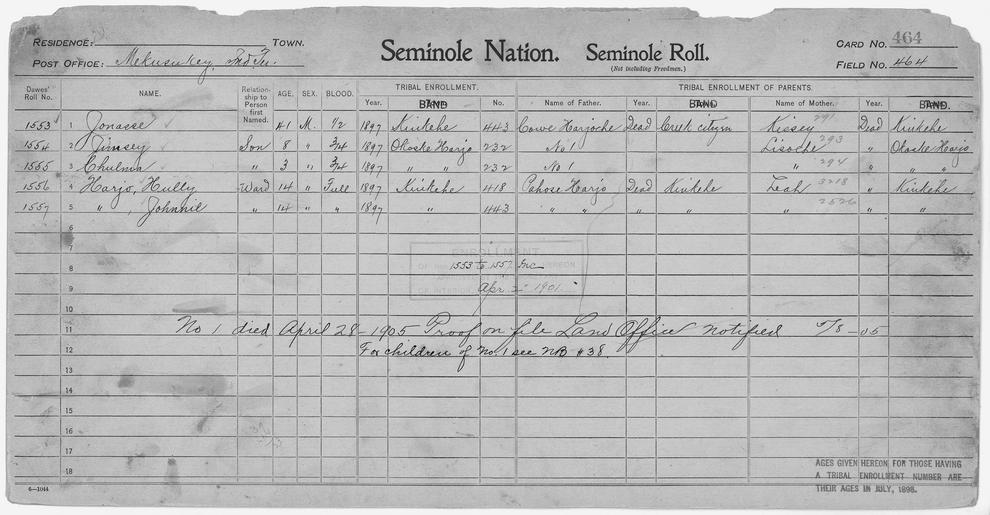 RESIDENCE: TOWN.
POST OFFICE: Mekusukey, Ind Ter.
Seminole Nation. Seminole Roll.
(Not including Freedmen.)
CARD NO. 464
FIELD NO. 464
Dawes' Roll No. NAME. Relationship to Person first Named. AGE. SEX. BLOOD. TRIBAL ENROLLMENT. TRIBAL ENROLLMENT OF PARENTS.
Year. BAND No. Name of Father. Year. BAND Name of Mother. Year. BAND.
1553 1 Jonasse 41 M. 1/2 1897 Kinkehe 443 Cowe Harjoche Dead Creek citizen Kissey 291 Dead Kinkehe
1554 2 Jimsey Son 8 " 3/4 1897 Okoske Harjo 232 No 1 Lisoche 293 " Okoske Harjo
1555 3 Chulma " 3 " 3/4 1897 " " 232 No 1 " 294 " " "
1556 4 Harjo, Hully Ward 14 " Full 1897 Kinkehe 418 Pahose Harjo Dead Kinkehe Leah 3218 " Kinkehe
1557 5 " , Johnnie " 14 " " 1897 " 443 " " " " " 2526 " "
6
7
ENROLLMENT
8 1553 to 1557 Inc
9 Apr 2 1901
10
11 No 1 died April 28 - 1905 Proof on file Land Office notified 5/8-05
12 For children of No. 1 see NB #38.
13
14
15
16
17
18
6-1044
AGES GIVEN HEREON FOR THOSE HAVING
A TRIBAL ENROLLMENT NUMBER ARE
THEIR AGES IN JULY, 1898.